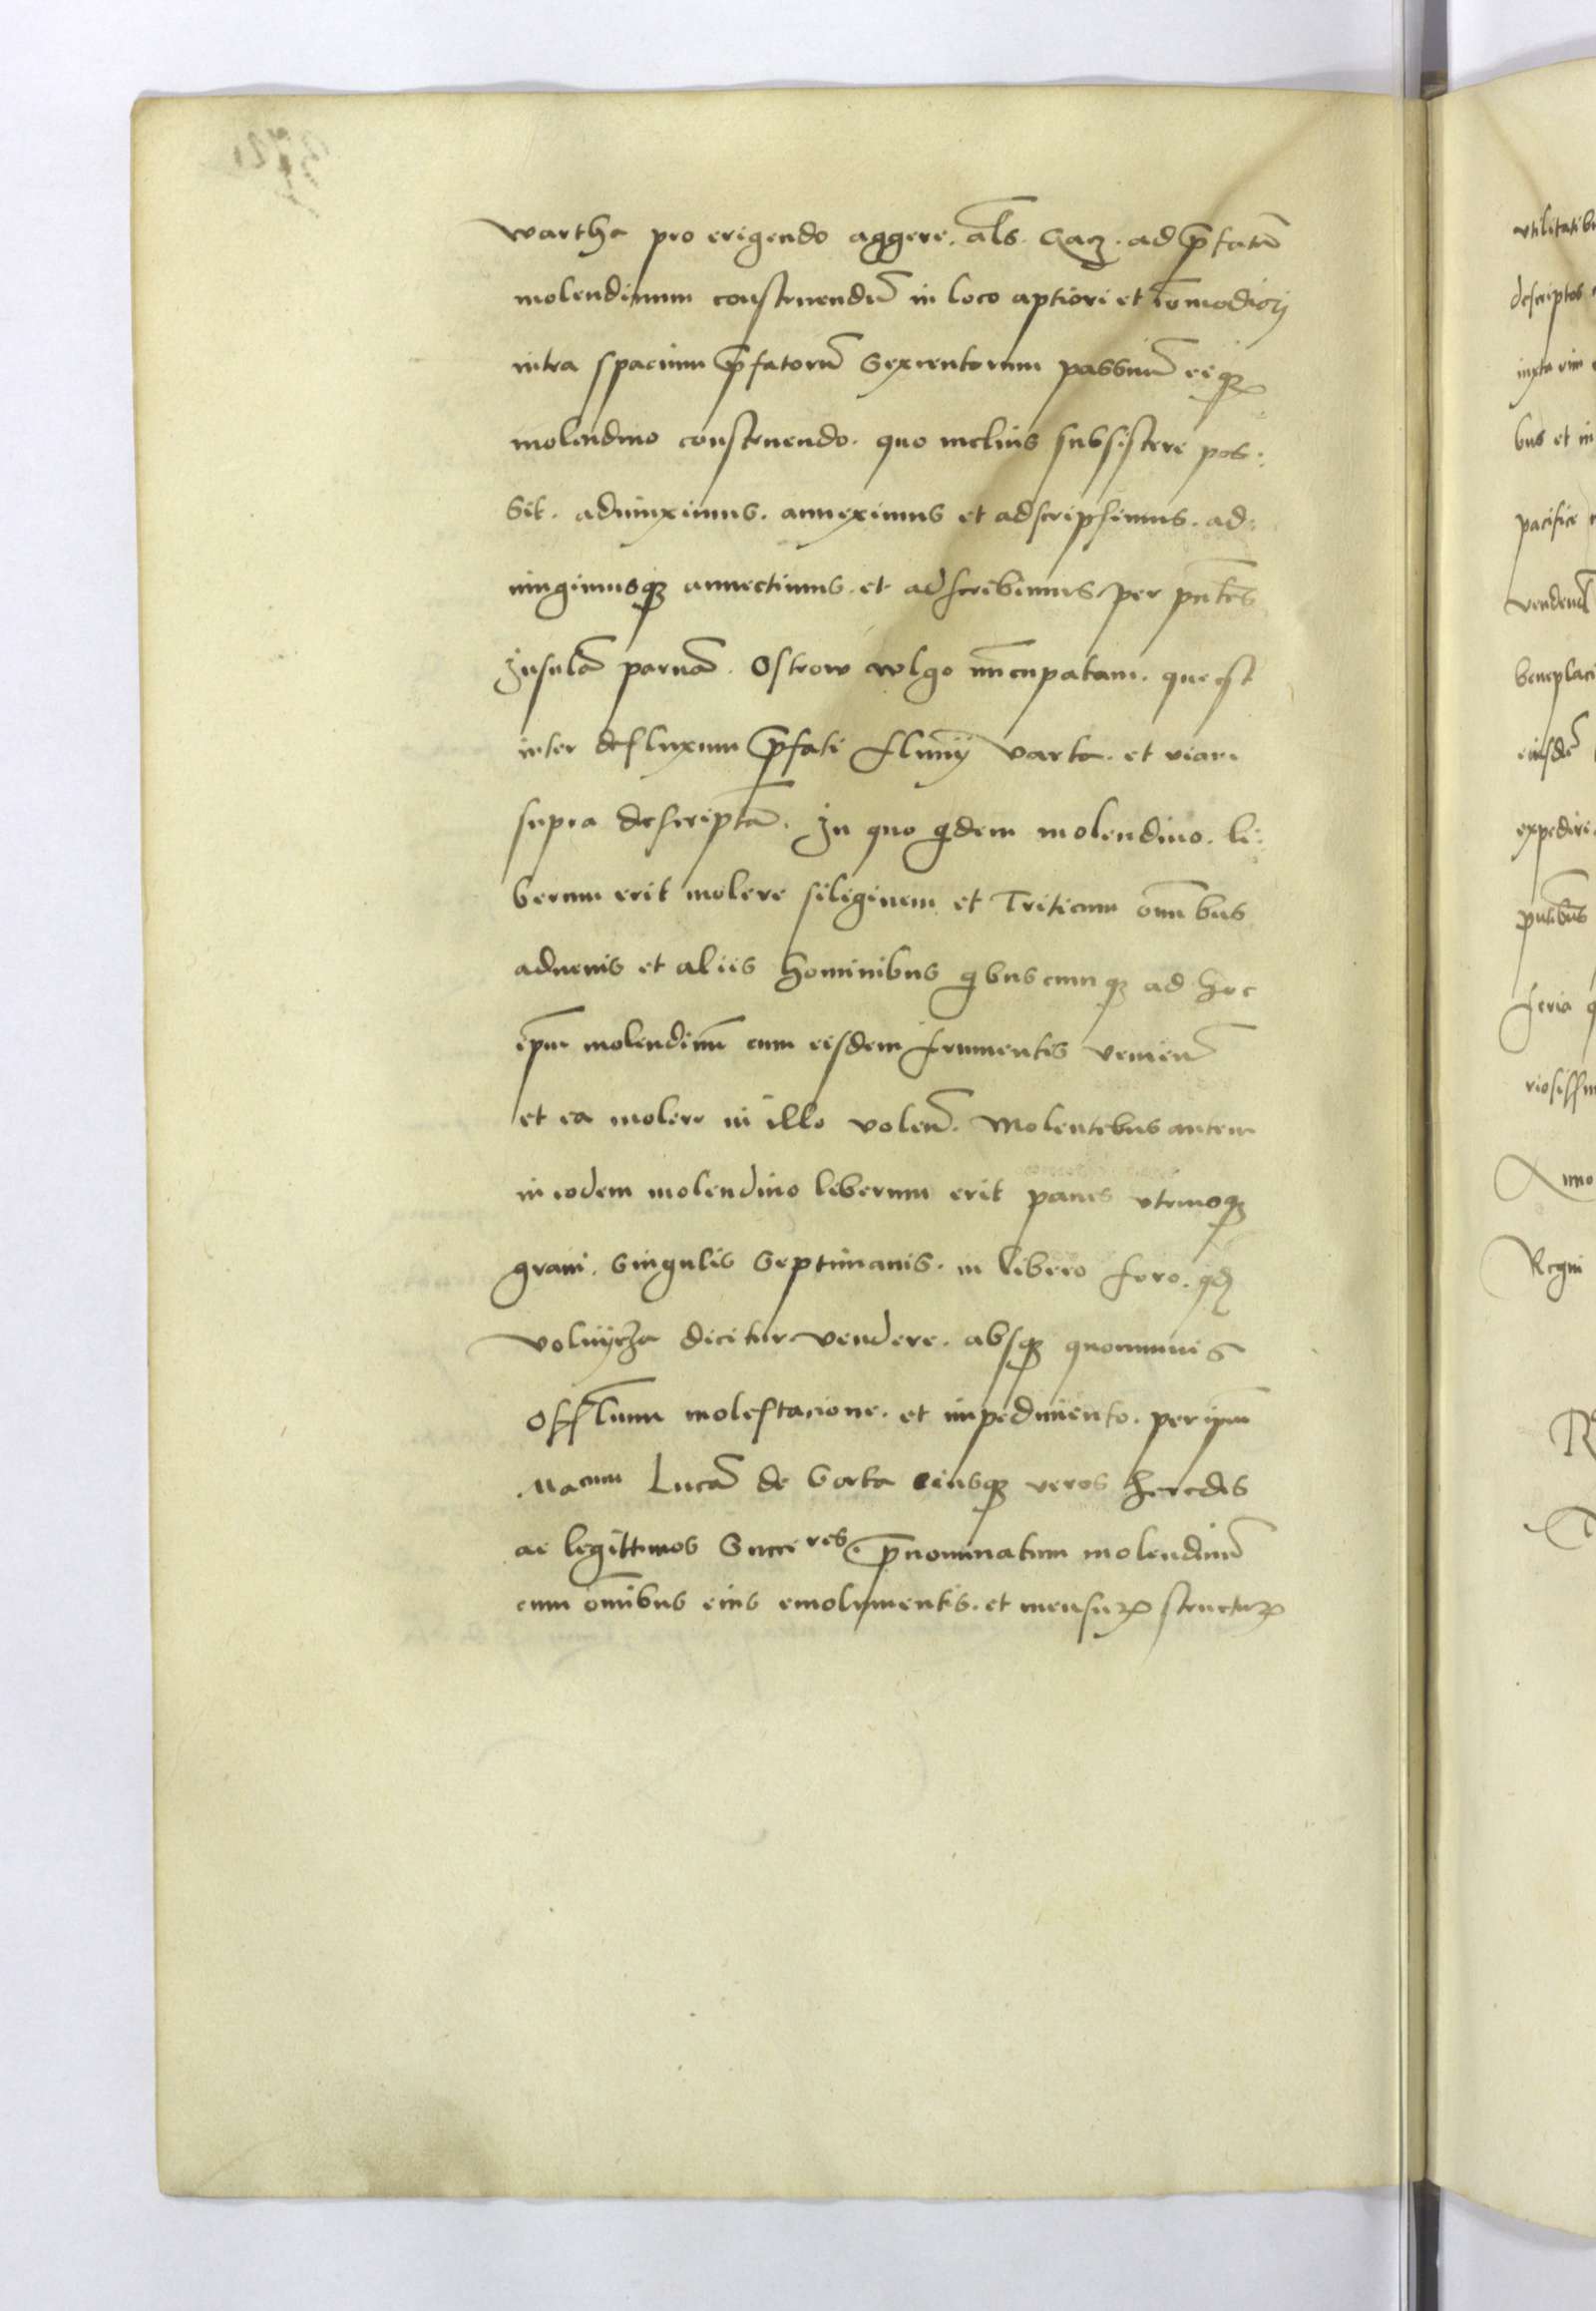 wartha pro erigendo aggere. als. Gacz. ad p̄fatū
molendinum construendū in loco aptiori et cōmodiori
intra spacium p̄fatorū sexcentorum passuum eiq3
molendino construendo. quo melius subsistere pos:
sit. adiunximus. anneximus et adscripsimus. ad:
iungimusq3 annectimus. et adscribimus per pn̄tes
Insulā paruā. Ostrow wlgo nūcupatam. que est
inter defluxum p̄fati fluuij Varta. et viam
supra descriptā. In quo qdem molendino. li:
berum erit molere siliginem et Triticum omībus
aduenis et aliis hominibus qbuscumq3 ad hoc
ipm̄ molendinū cum eisdem frumentis venien̄
et ea molere in illo volen̄. Molentibus autem
in eodem molendino liberum erit panes vtriusq3
grani. singulis septimanis. in libero foro. qd
voluycza dicitur vendere. absq3 quorumuis
Offlium molestacione. et impedimento. per ipm̄
Macum Lucā de Gorka eiusq3 veros heredes
ac legittimos Succeres. p̄nominatum molendinū
cum omībus eius emolumentis. et mensurar structurar
vtilitatibu
descriptos
iuxta vim
bus et in
pacifice
vendend
beneplaci
eiusdē
expedire
pn̄tibus
feria q
riosissim
Anno
Regni
R